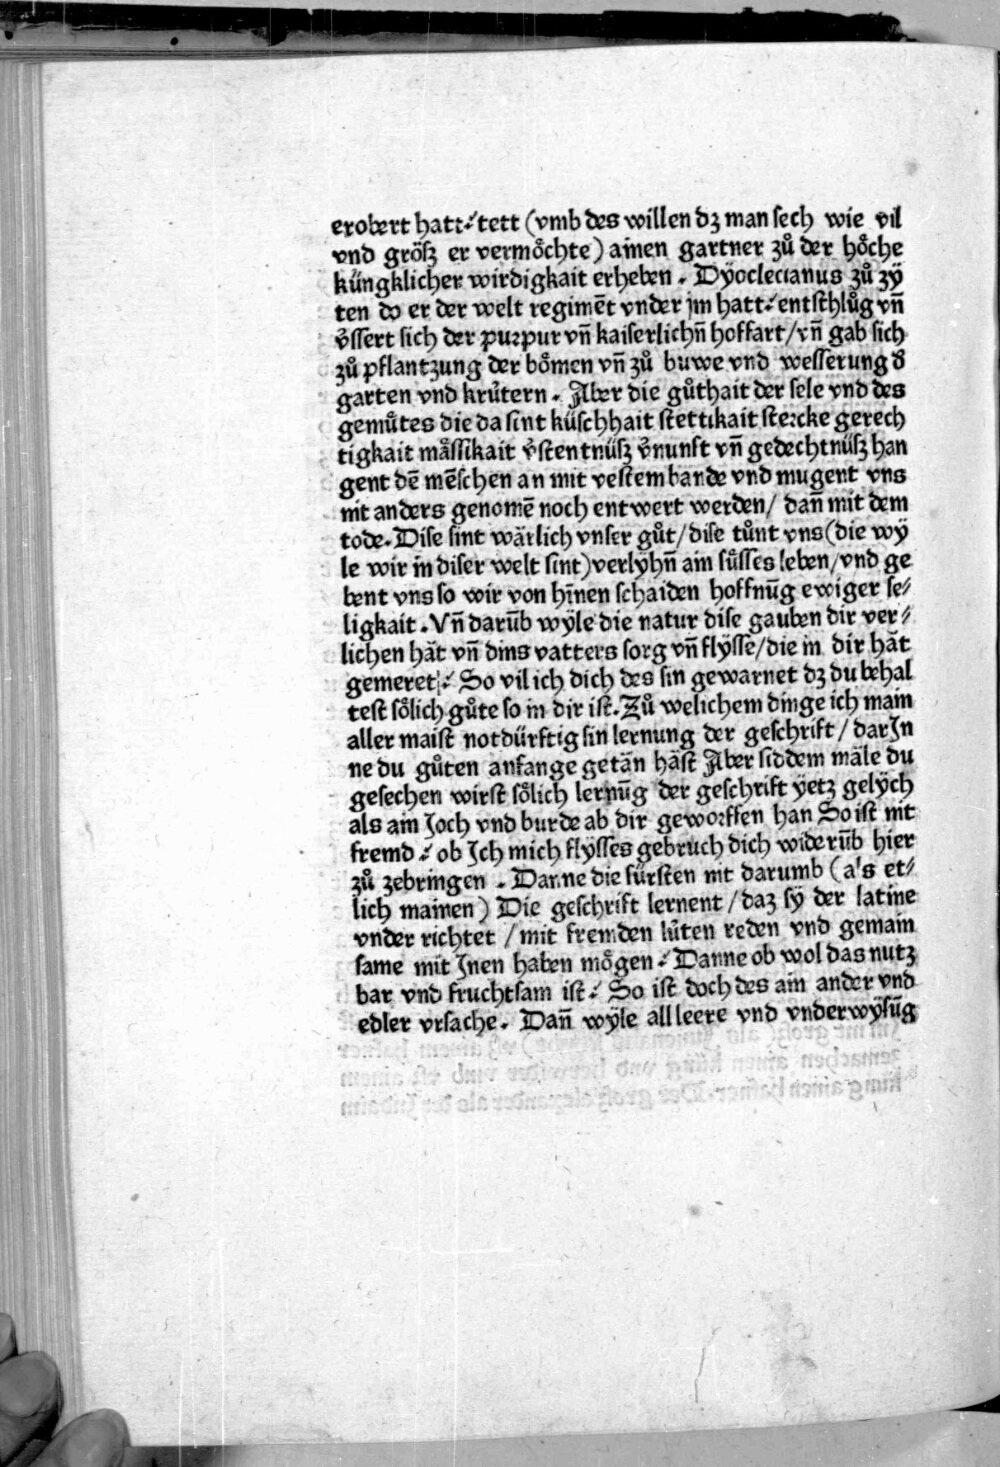 erobert hatt⸗tett (vmb des willen dz man sech wie vil
vnd größ er vermoͤchte) ainen gartner zů der hoͤche
küngklicher wirdigkait erheben . Dÿoclecianus zů zÿ
ten do er der welt regimēt vnder jm hatt⸗entschlůg vn̄
v̓ssert sich der purpur vn̄ kaiserlichn̄ hoffart/vn̄ gab sich
zů pflantzung der boͤmen vn̄ zů buwe vnd wesserung d̓
garten vnd krütern . Aber die gůthait der sele vnd des
gemuͤtes die da sint küschhait stettikait stercke gerech
tigkait maͤssikait v̓stentnüß v̓nunft vn̄ gedechtnüß han
gent dē mēschen an mit vestem bande vnd mugent vns
nit anders genomē noch entwert werden/ dan̄ mit dem
tode. Dise sint wärlich vnser gůt/dise tůnt vns(die wÿ
le wir in diser welt sint)verlyhn̄ ain suͤsses leben/vnd ge
bent vns so wir von hīnen schaiden hoffnūg ewiger se⸗
ligkait . Vn̄ darūb wÿle die natur dise gauben dir ver⸗
lichen hät vn̄ dins vatters sorg vn̄ flÿsse/die in dir hät
gemeret⸗ So vil ich dich des sin gewarnet dz du behal
test soͤlich guͤte so in dir ist. Zů welichem dinge ich main
aller maist notdürftig sin lernung der geschrift / dar Jn
ne du gůten anfange getän häst Aber siddem mäle du
gesechen wirst soͤlich lernūg der geschrift ÿetz gelÿch
als ain Joch vnd burde ab dir geworffen han So ist nit
fremd⸗ ob Jch mich flÿsses gebruch dich widerūb hier
zů zebringen . Danne die fürsten nit darumb (als et⸗
lich mainen) Die geschrift lernent /daz sÿ der latine
vnder richtet /mit fremden lüten reden vnd gemain
same mit Jnen haben moͤgen⸗ Danne ob wol das nutz
bar vnd fruchtsam ist⸗ So ist doch des ain ander vnd
edler vrsache. Dan̄ wÿle all leere vnd vnderwÿsūg